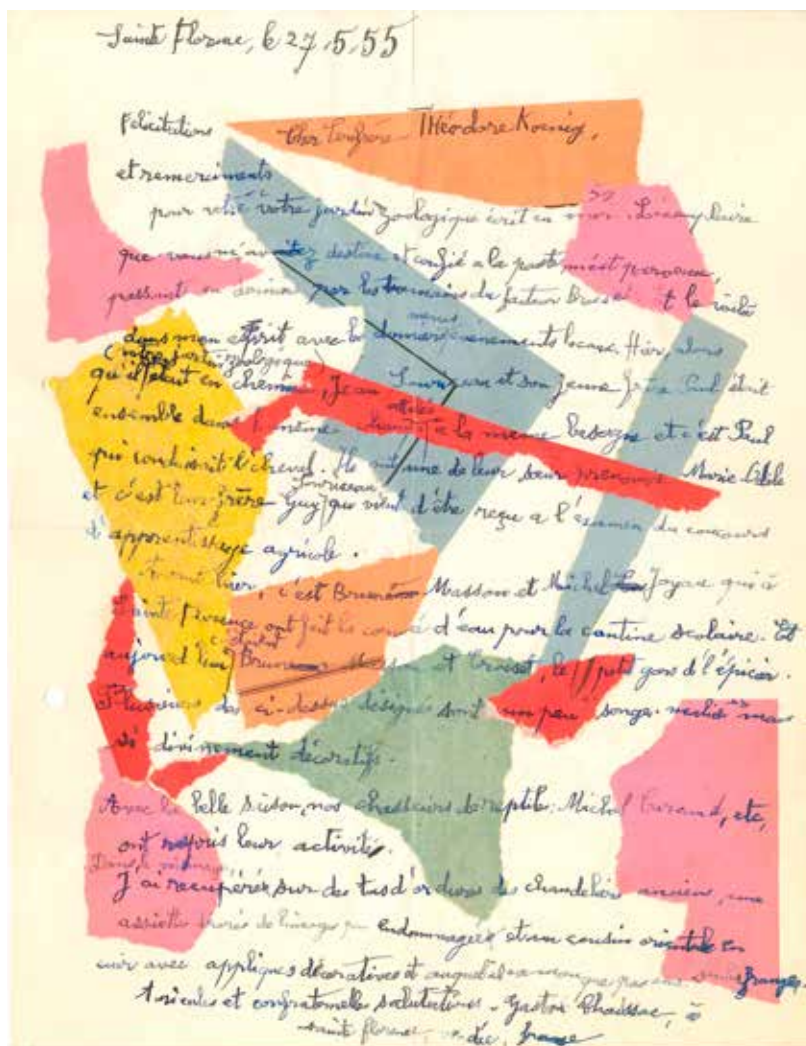 Sainte Florence, le 27.5.55
Félicitations Cher Confrère Théodore Koenig,
et remerciments
pour votre jardin zoologique écrit en mur. L'éxemplaire
que vous m'aviez destiné et confié a la poste m'est parvenu,
passant en dernier par les mains du facteur et le voilà
menus
dans mon esprit avec les derniers évènements locaux. Hier, alors
(votre jardin zoologique)
qu'il était en chemin, Jean Sourisseau et son jeune frère Paul était
attelés
ensemble dans la même a la meme besogne et c'est Paul
qui conduisait l'cheval. Ils ont une de leur soeur prénommée Marie
Sourisseau
et c'est leur frère Guy qui vient d'être reçu a l'éxamen du concours
d'apprentissage agricole.
hier, c'est Bruno Masson et Michel Joyau qui à
Sainte Florence ont fait la corvée d'eau pour la cantine scolaire. Et
c'etait
aujourd'hui Bruno Masson et le petit gars d'l'épicier.
Plusieurs des ci-dessus désignés sont un peu songe mais
divinement décoratifs.
Avec la belle saison, nos chasseurs de reptiles: Michel etc,
ont repris leur activité.
J'ai recupérés sur des tas d'ordures des chandeliers anciens, une
assiette de Limoges endommagée et un coussin orientale en
cuir avec appliques décoratives et auquel il manque pas ses franges.
Amicales et confraternelles salutations. Gaston Chaissac, à
sainte florence, vendée, france